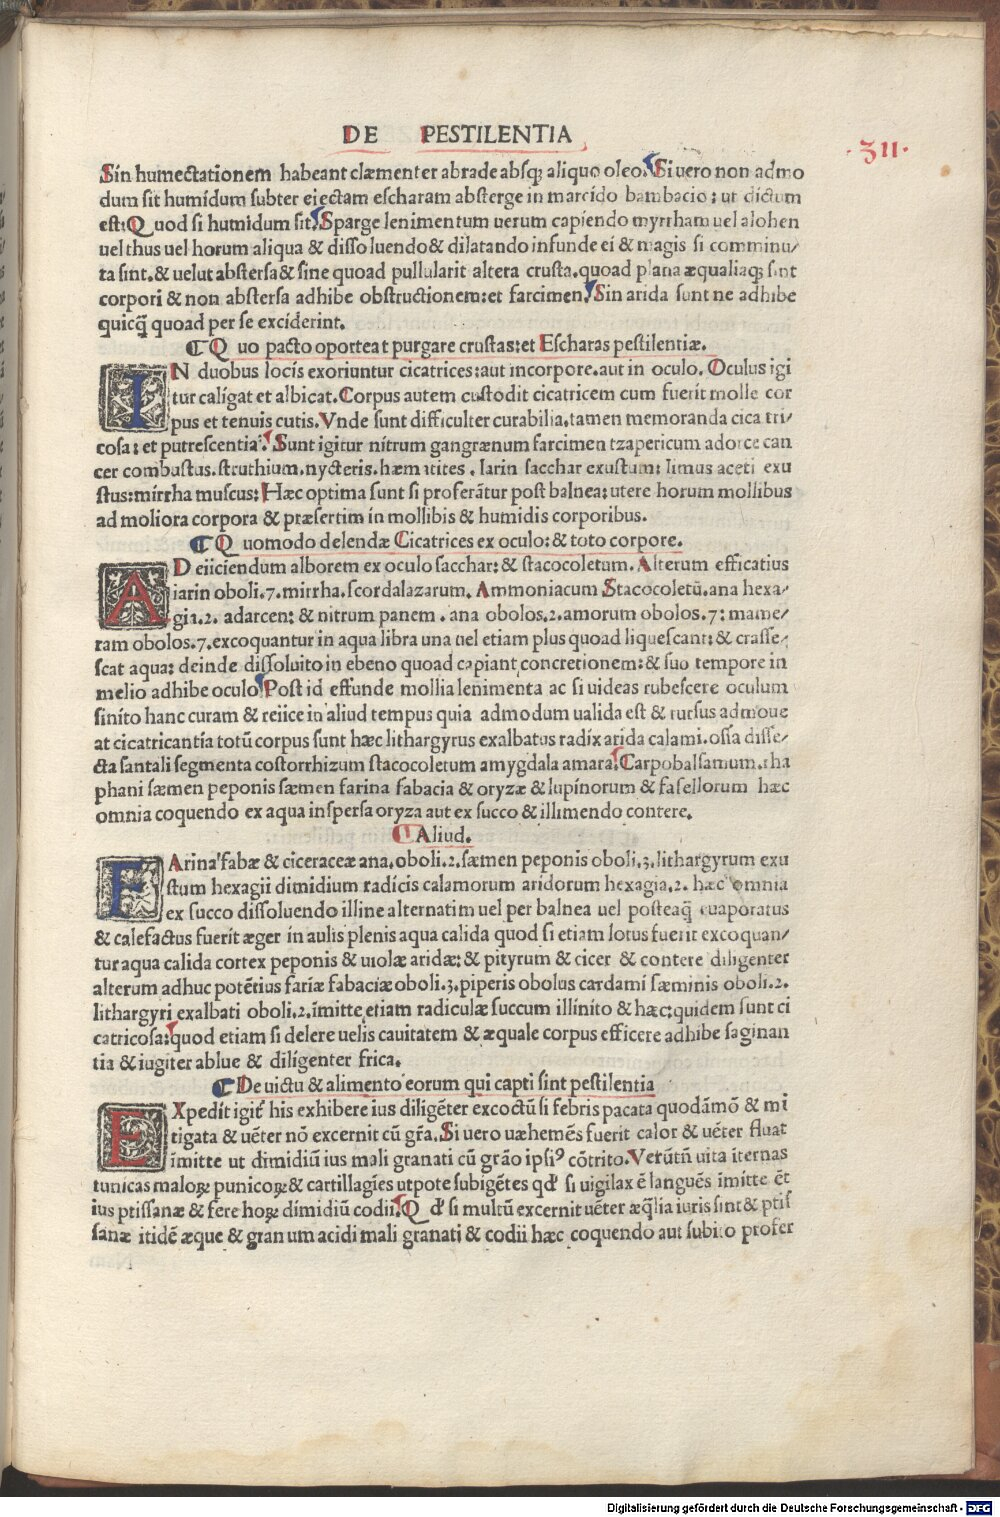 DE PESTILENTIA
·311·
Sin humectationem habeant clæmenter abrade absq; aliquo oleo. Si uero non admo
dum sit humidum subter eiectam escharam absterge in marcido bambacio: ut dictum
est: Quod si humidum sit. Sparge lenimentum uerum capiendo myrrham uel alohen
uel thus uel horum aliqua & dissoluendo & dilatando infunde ei & magis si comminu/
ta sint. & uelut abstersa & sine quoad pullularit altera crusta. quoad plana æqualiaq; sint
corpori & non abstersa adhibe obstructionem: et farcimen. Sin arida sunt ne adhibe
quicq̃ quoad per se exciderint.
¶ Quo pacto oporteat purgare crustas: et Escharas pestilentiæ.
IN duobus locis exoriuntur cicatrices: aut incorpore. aut in oculo. Oculus igi
tur caligat et albicat. Corpus autem custodit cicatricem cum fuerit molle cor
pus et tenuis cutis. Vnde sunt difficulter curabilia. tamen memoranda cica tri/
cosa: et putrescentia. Sunt igitur nitrum gangrænum farcimen tzapericum adorce can
cer combustus. struthium. nycteris. hæmatites. Iarin sacchar exustum: limus aceti exu
stus: mirrha muscus: Hæc optima sunt si proferãtur post balnea: utere horum mollibus
ad moliora corpora & præsertim in mollibis & humidis corporibus.
¶ Quomodo delendæ Cicatrices ex oculo: & toto corpore.
AD eiiciendum alborem ex oculo sacchar: & stacocoletum. Alterum efficatius
iarin oboli. 7. mirrha. scordalazarum. Ammoniacum Stacocoletũ. ana hexa/
gia. 2. adarcen: & nitrum panem. ana obolos. 2. amorum obolos. 7: mame/
ram obolos. 7. excoquantur in aqua libra una uel etiam plus quoad liquescant: & crasse/
scat aqua: deinde dissoluito in ebeno quoad capiant concretionem: & suo tempore in
melio adhibe oculo. Post id effunde mollia lenimenta ac si uideas rubescere oculum
sinito hanc curam & reiice in aliud tempus quia admodum ualida est & rursus admoue
at cicatricantia totũ corpus sunt hæc lithargyrus exalbatus radix arida calami. ossa disse/
cta santali segmenta costorrhizum stacocoletum amygdala amara. Carpobalsamum. rha
phani sæmen peponis sæmen farina fabacia & oryzæ & lupinorum & fasellorum hæc
omnia coquendo ex aqua inspersa oryza aut ex succo & illimendo contere.
¶ Aliud.
FArina fabæ & ciceraceæ ana. oboli. 2. sæmen peponis oboli. 3. lithargyrum exu
stum hexagii dimidium radicis calamorum aridorum hexagia. 2. hæc omnia
ex succo dissoluendo illine alternatim uel per balnea uel posteaq̃ euaporatus
& calefactus fuerit æger in aulis plenis aqua calida quod si etiam lotus fuerit excoquan/
tur aqua calida cortex peponis & uiolæ aridæ: & pityrum & cicer & contere diligenter
alterum adhuc potẽtius fariæ fabaciæ oboli. 3. piperis obolus cardami sæminis oboli. 2.
lithargyri exalbati oboli. 2. imitte etiam radiculæ succum illinito & hæc: quidem sunt ci
catricosa: quod etiam si delere uelis cauitatem & æquale corpus efficere adhibe saginan
tia & iugiter ablue & diligenter frica.
¶ De uictu & alimento eorum qui capti sint pestilentia
EXpedit igit̃ his exhibere ius diligẽter excoctũ si febris pacata quodãmõ & mi
tigata & uẽter nõ excernit cũ gr̃a. Si uero uæhemẽs fuerit calor & uẽter fluat
imitte ut dimidiũ ius mali granati cũ grão ipsi⁹ cõtrito. Verũtũ uita ĩternas
tunicas maloꝝ punicoꝝ & cartillagĩes utpote subigẽtes qđ si uigilax ẽ languẽs ĩmitte ẽt
ius ptissanæ & fere hoꝝ dimidiũ codii. Qđ si multũ excernit uẽter æq̃lia iuris sint & ptis
sanæ itidẽ æque & granum acidi mali granati & codii hæc coquendo aut subito profer
Digitalisierung gefördert durch die Deutsche Forschungsgemeinschaft - DFG